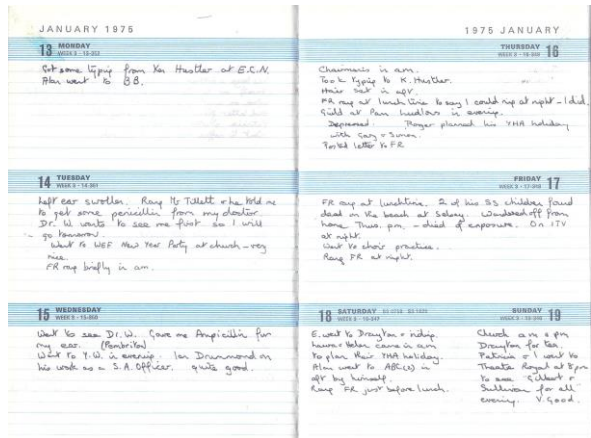 JANUARY 1975
13 MONDAY
WEEK 3 · 13-352
Got some typing from Ken Hustler at E.C.N.
Alan went to BB.
14 TUESDAY
WEEK 3 · 14-351
Left ear swollen. Rang Mr Tillett & he told me
to get some penicillin from my doctor.
Dr. W. wants to see me first so I will
go tomorrow.
Went to WEF New Year Party at church – very
nice.
FR rang briefly in a.m.
15 WEDNESDAY
WEEK 3 · 15-350
Went to see Dr. W. Gave me Ampicillin for
my ear. (Penbritin)
Went to Y.W. in evening. Ian Drummond on
his work as a S.A. Officer. quite good.
1975 JANUARY
THURSDAY 16
WEEK 3 · 16-349
in a.m.
Took typing to K. Hustler.
Hair set in aft.
FR rang at lunch time to say I could rip at night – I did.
Guild at Pam Ludlows in evening.
Depressed. Roger planned his YHA holiday
with Gary & Simon.
Posted letter to FR
FRIDAY 17
WEEK 3 · 17-348
FR rang at lunchtime. 2 of his SS children found
dead on the beach at Selsey. Wandered off from
home Thurs. p.m. – died of exposure. On ITV
at night.
Went to choir practice.
Rang FR at night.
18 SATURDAY
WEEK 3 · 18-347
E. went to Drayton & riding.
Laura & Helen came in a.m.
to plan their YHA holiday.
Alan went to ABC(2) in
aft by himself.
Rang FR just before lunch.
SUNDAY 19
WEEK 3 · 19-346
Church a.m & p.m
Drayton for tea.
Patricia & I went to
Theatre Royal at 8pm
to see Gilbert &
Sullivan for all
evening. V. Good.